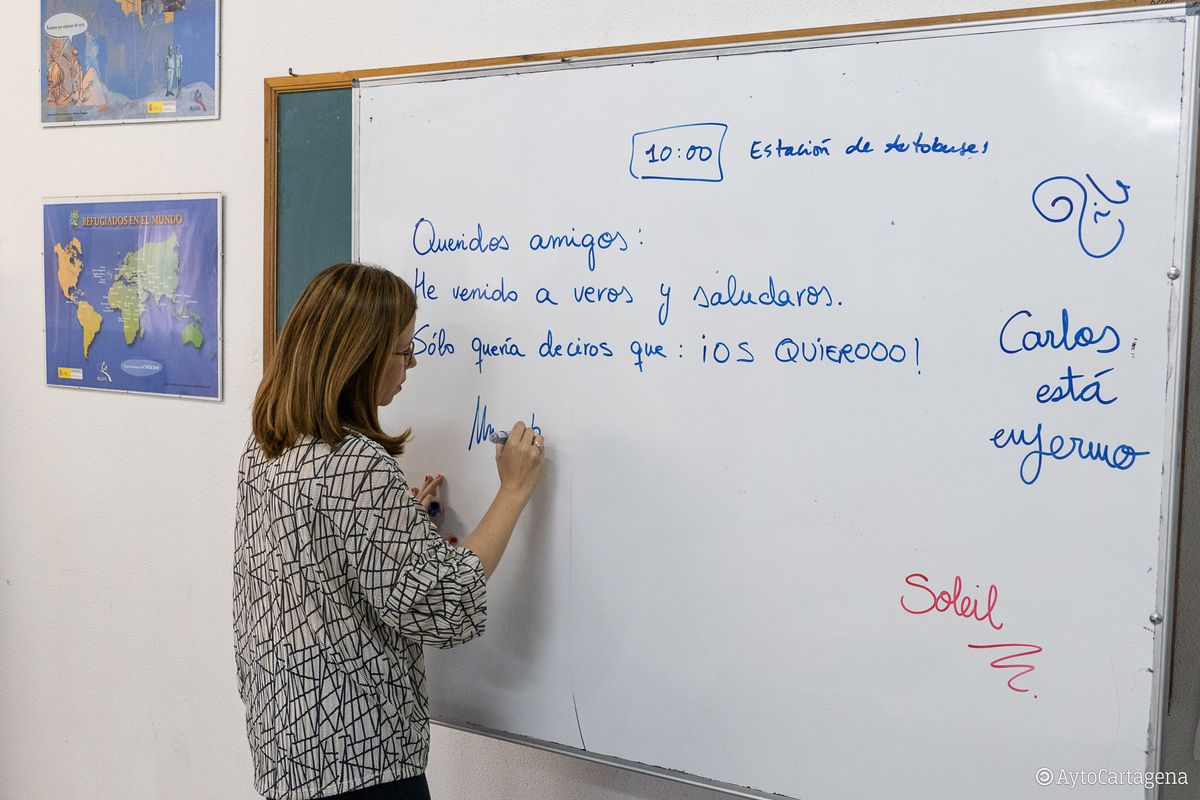 REFUGIADOS EN EL MUNDO
10:00 Estación de Autobuses
Queridos amigos:
He venido a veros y saludaros.
Sólo quería deciros que: ¡OS QUIEROOO!
Carlos
está
enfermo
Soleil
AytoCartagena